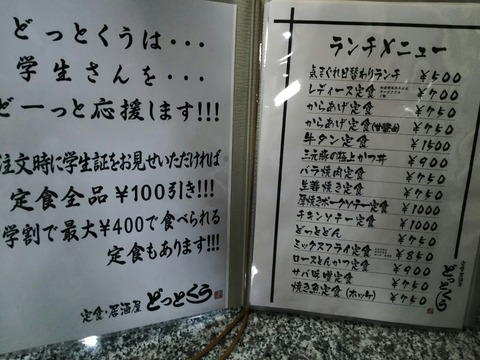 どっとくうは・・・
学生さんを・・・
どーっと応援します!!!
注文時に学生証をお見せいただければ
定食全品￥100引き!!!
学割で最大￥400で食べられる
定食もあります!!!
定食・居酒屋 どっとくう
ランチメニュー
気まぐれ日替わりランチ ￥500
レディース定食 ￥700
からあげ定食 ￥750
からあげ定食(甘醤油) ￥750
牛タン定食 ￥1500
三元豚の極上かつ丼 ￥900
バラ焼肉定食 ￥750
生姜焼き定食 ￥750
厚焼きポークソテー定食 ￥1000
チキンソテー定食 ￥1000
どっとどん ￥750
ミックスフライ定食 ￥850
ロースとんかつ定食 ￥900
サバ味噌定食 ￥750
焼き魚定食(ホッケ) ￥750
定食・居酒屋
どっとくう